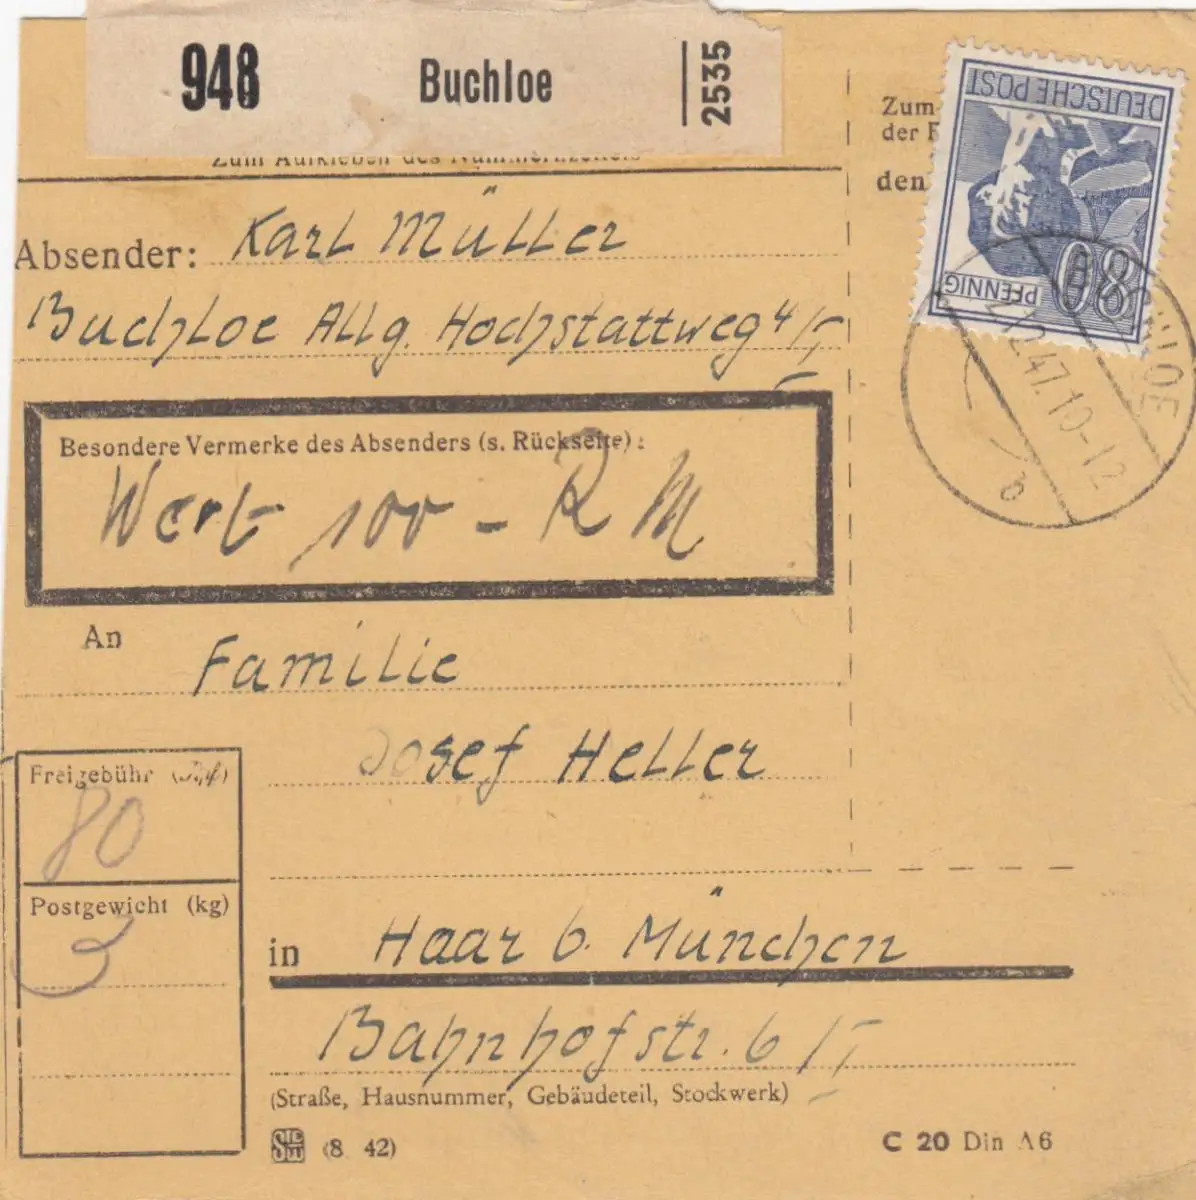 948 Buchloe 2535
Zum Aufkleben des Nummernzettels
Absender: Karl Müller
Buchloe Allg. Hochstattweg 4/I
Besondere Vermerke des Absenders (s. Rückseite):
Wert 100 - RM
An
Familie
Josef Heller
Freigebühr (Rpf)
80
Postgewicht (kg)
3
in Haar b. München
Bahnhofstr. 6/I
(Straße, Hausnummer, Gebäudeteil, Stockwerk)
(8 42)
C 20 Din A6
Zum
der
den
DEUTSCHE POST
80
PFENNIG
BUCHLOE
12.47.10-12
b